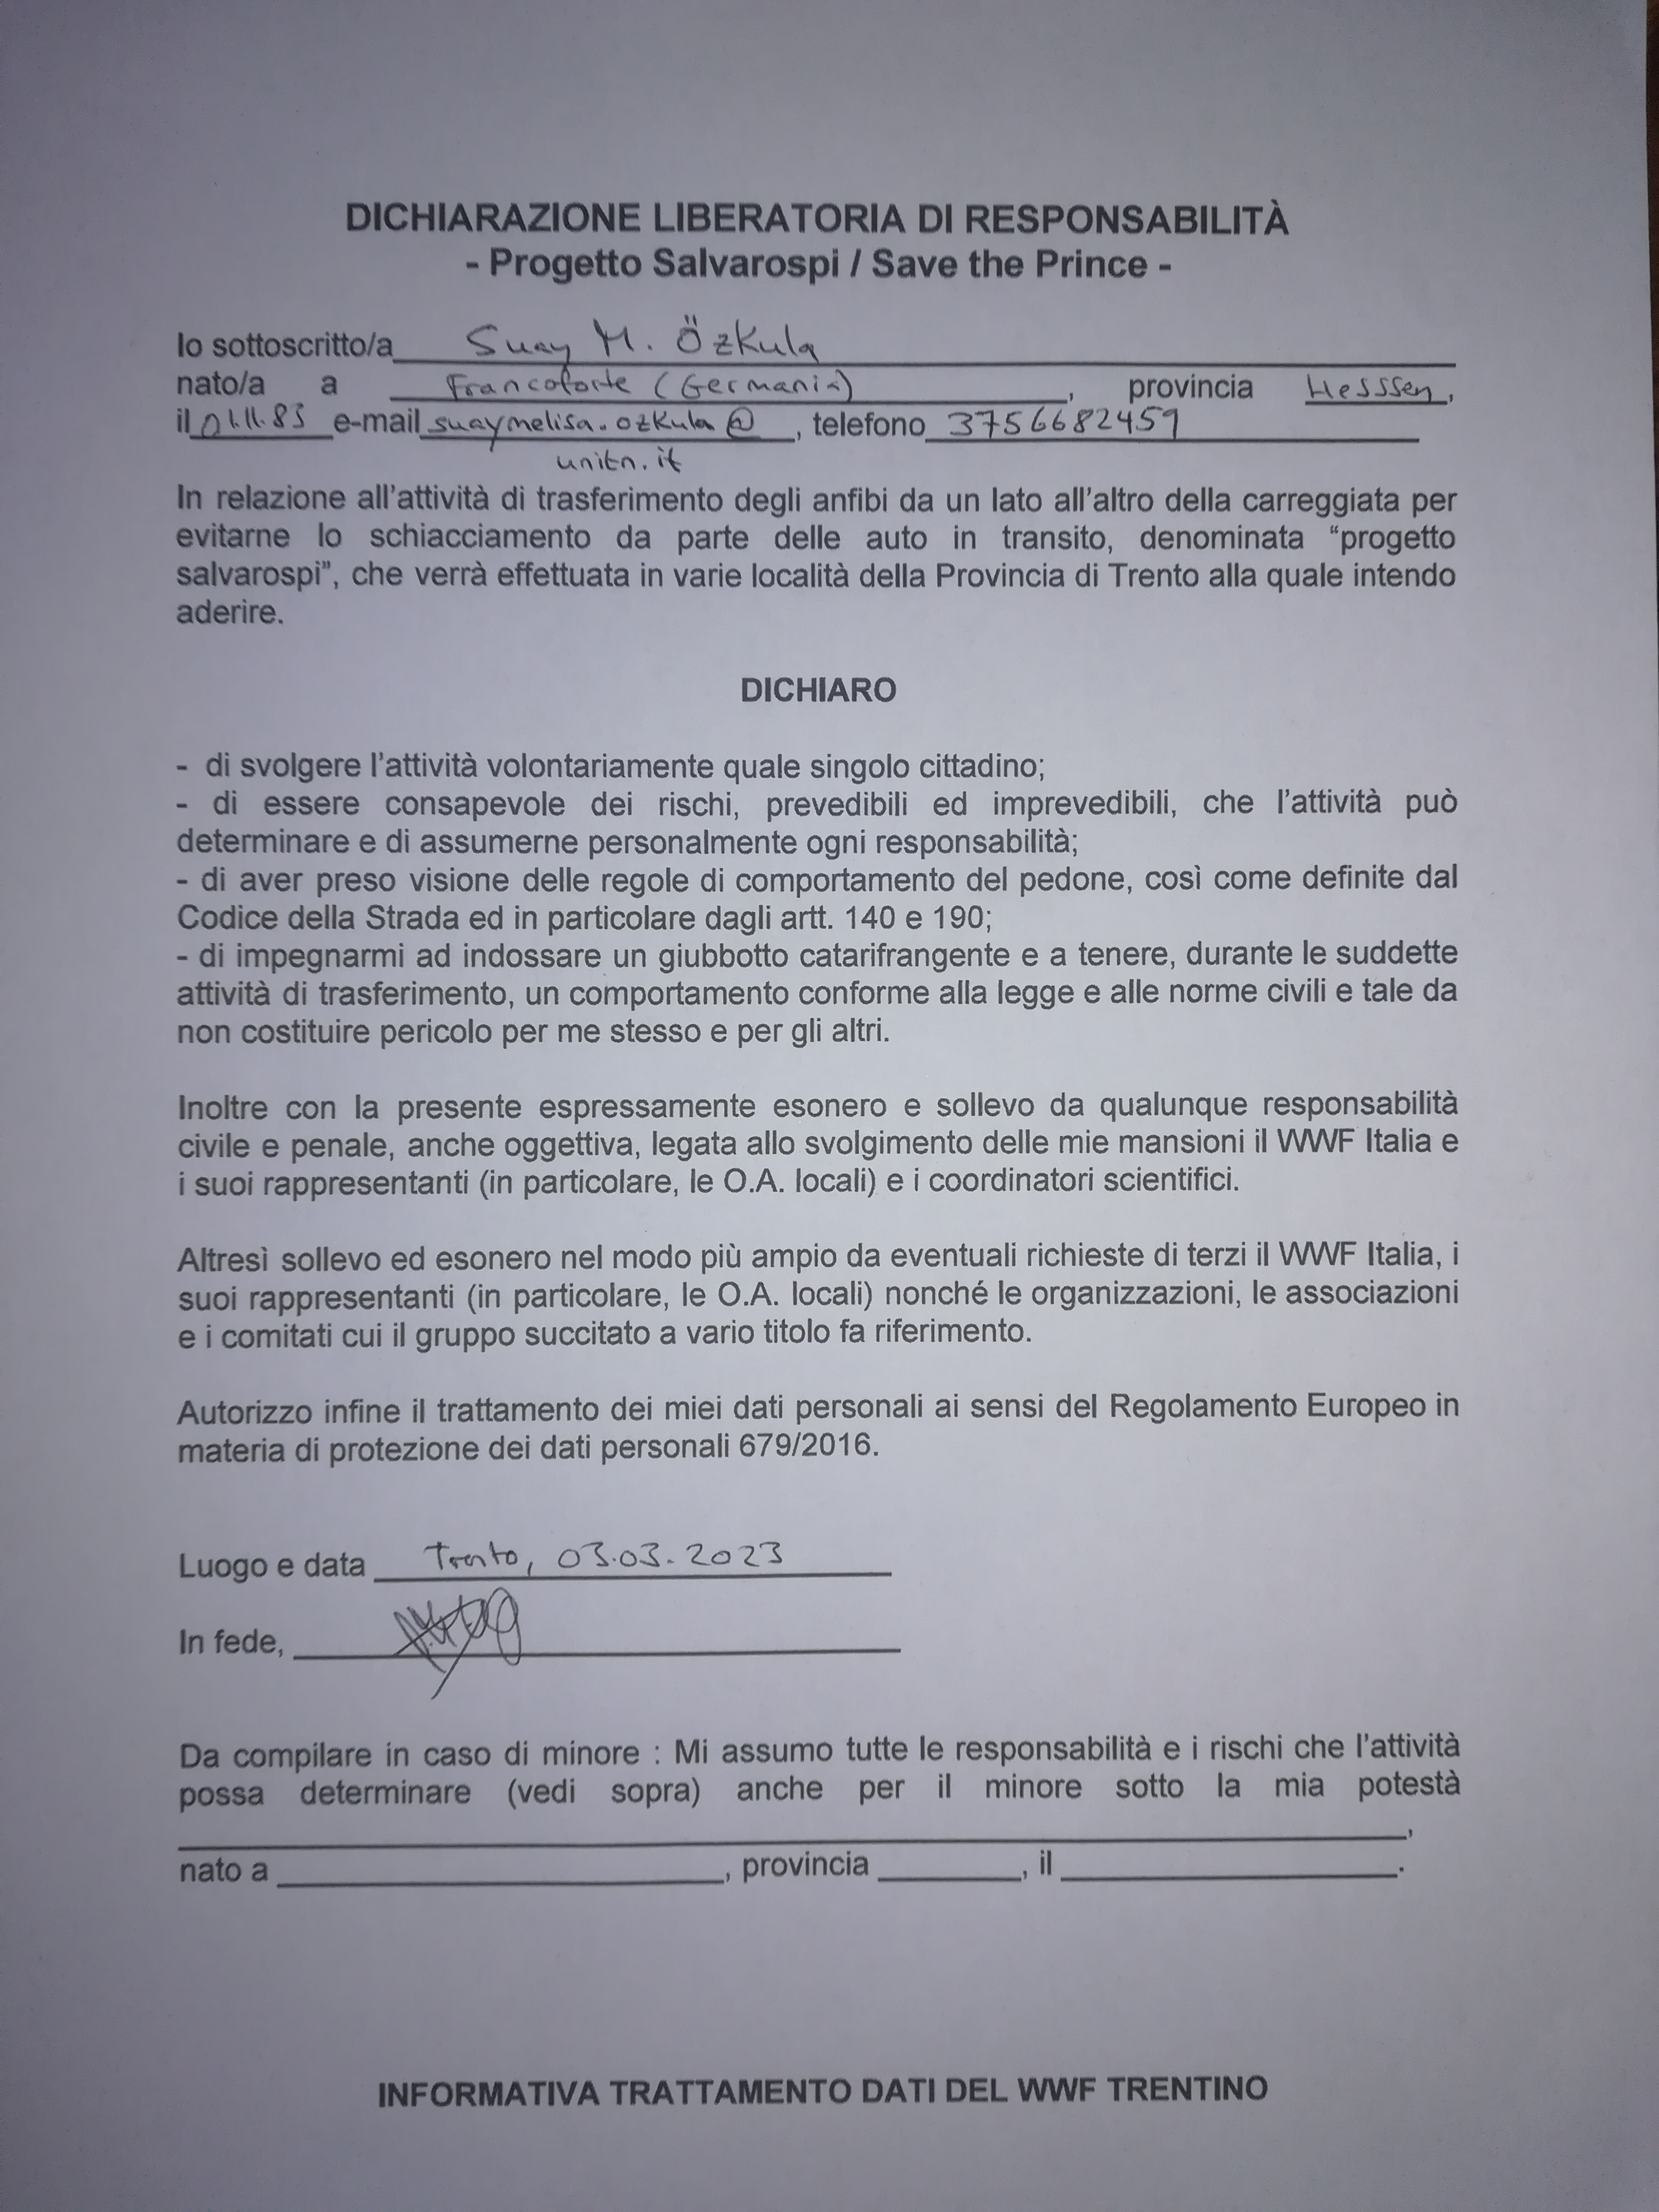 DICHIARAZIONE LIBERATORIA DI RESPONSABILITÀ
- Progetto Salvarospi / Save the Prince -
Io sottoscritto/a Suay M. Özkula
nato/a a Francoforte (Germania), provincia Hesssen,
il 01.11.83 e-mail suaymelisa.ozkula@, telefono 3756682459
unitn.it
In relazione all'attività di trasferimento degli anfibi da un lato all'altro della carreggiata per
evitarne lo schiacciamento da parte delle auto in transito, denominata “progetto
salvarospi”, che verrà effettuata in varie località della Provincia di Trento alla quale intendo
aderire.
DICHIARO
- di svolgere l'attività volontariamente quale singolo cittadino;
- di essere consapevole dei rischi, prevedibili ed imprevedibili, che l'attività può
determinare e di assumerne personalmente ogni responsabilità;
- di aver preso visione delle regole di comportamento del pedone, così come definite dal
Codice della Strada ed in particolare dagli artt. 140 e 190;
- di impegnarmi ad indossare un giubbotto catarifrangente e a tenere, durante le suddette
attività di trasferimento, un comportamento conforme alla legge e alle norme civili e tale da
non costituire pericolo per me stesso e per gli altri.
Inoltre con la presente espressamente esonero e sollevo da qualunque responsabilità
civile e penale, anche oggettiva, legata allo svolgimento delle mie mansioni il WWF Italia e
i suoi rappresentanti (in particolare, le O.A. locali) e i coordinatori scientifici.
Altresì sollevo ed esonero nel modo più ampio da eventuali richieste di terzi il WWF Italia, i
suoi rappresentanti (in particolare, le O.A. locali) nonché le organizzazioni, le associazioni
e i comitati cui il gruppo succitato a vario titolo fa riferimento.
Autorizzo infine il trattamento dei miei dati personali ai sensi del Regolamento Europeo in
materia di protezione dei dati personali 679/2016.
Luogo e data Trento, 03.03.2023
In fede,
Da compilare in caso di minore : Mi assumo tutte le responsabilità e i rischi che l'attività
possa determinare (vedi sopra) anche per il minore sotto la mia potestà
,
nato a , provincia , il .
INFORMATIVA TRATTAMENTO DATI DEL WWF TRENTINO